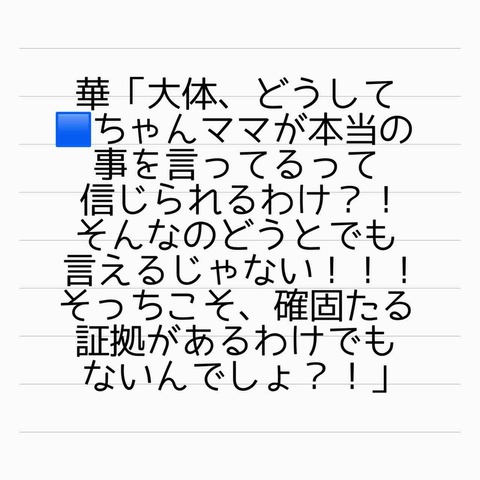 華「大体、どうして
🟦ちゃんママが本当の
事を言ってるって
信じられるわけ？！
そんなのどうとでも
言えるじゃない！！！
そっちこそ、確固たる
証拠があるわけでも
ないんでしょ？！」